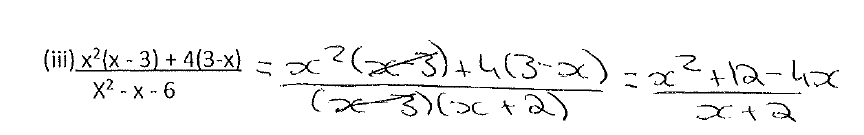 (iii) x²(x - 3) + 4(3-x) / X² - x - 6 = x²(x-3)+4(3-x) / (x-3)(x+2) = x²+12-4x / x+2